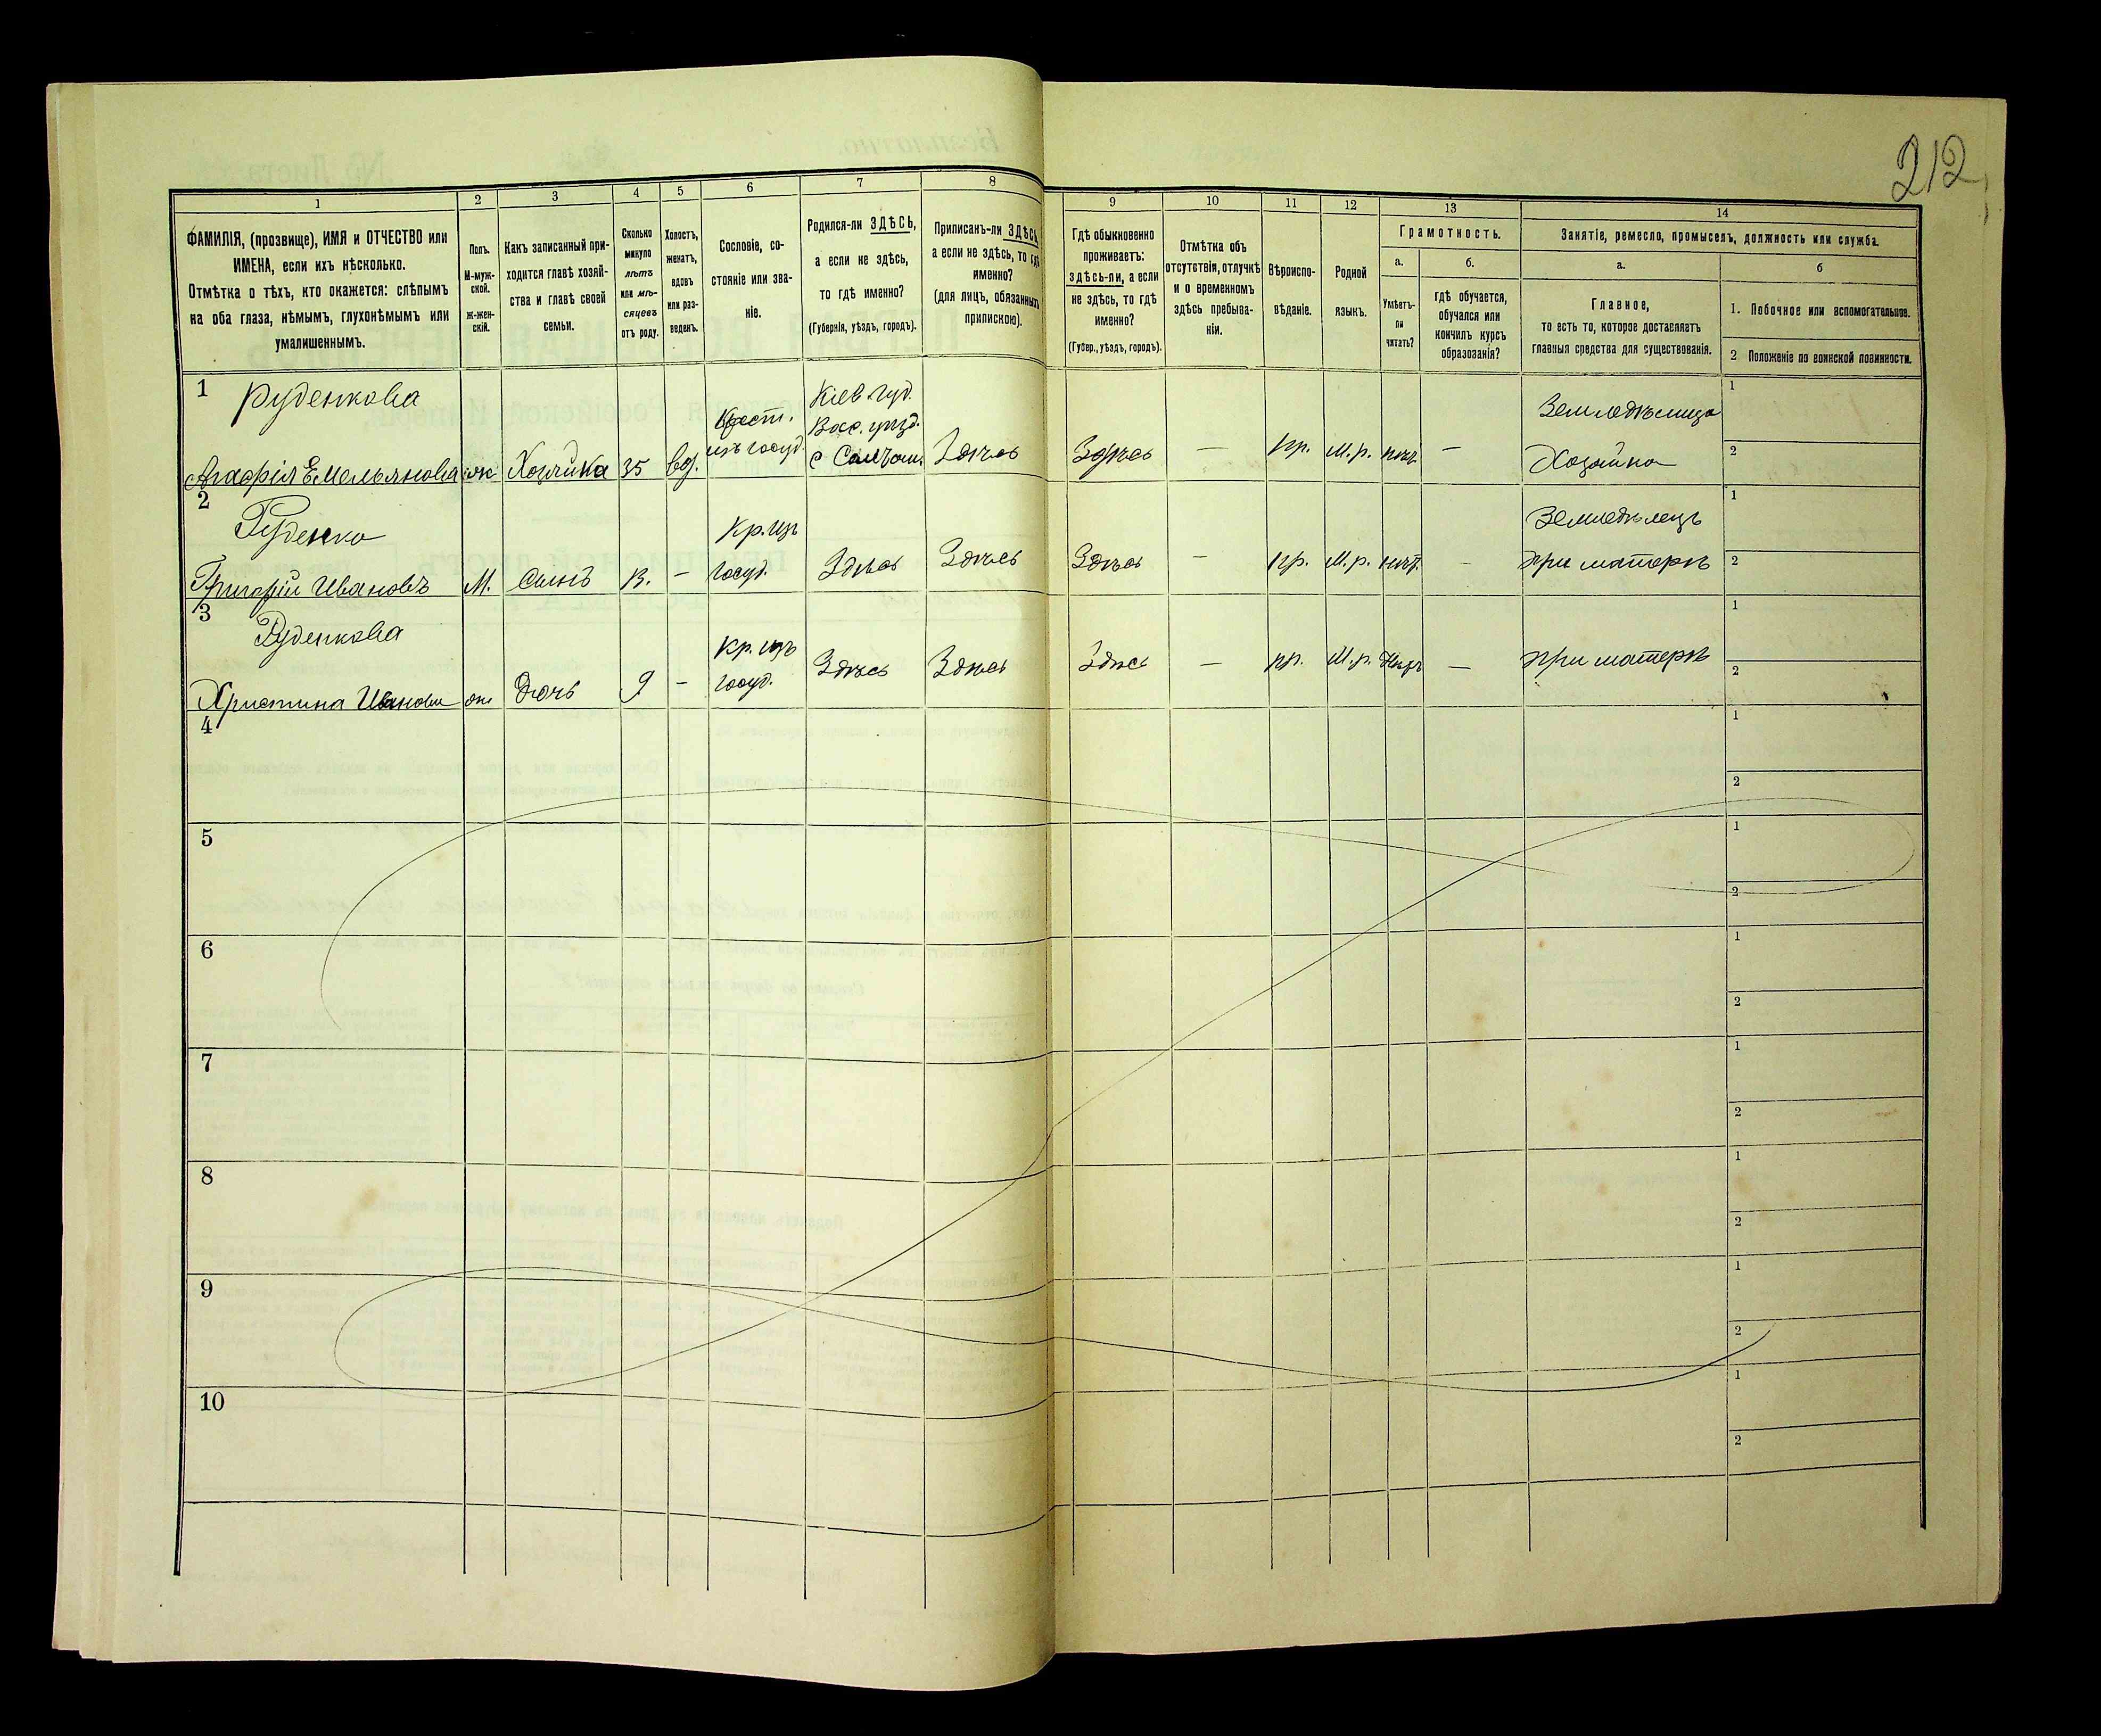 212
1
2
3
4
5
6
7
8
9
10
11
12
13
14
ФАМИЛІЯ, (прозвище), ИМЯ и ОТЧЕСТВО или
ИМЕНА, если ихъ нѣсколько.
Отмѣтка о тѣхъ, кто окажется: слѣпымъ
на оба глаза, нѣмымъ, глухонѣмымъ или
умалишеннымъ.
Полъ.
М-муж-
ской.
Ж-жен-
скій.
Какъ записанный при-
ходится главѣ хозяй-
ства и главѣ своей
семьи.
Сколько
минуло
лѣтъ
или мѣ-
сяцевъ
отъ роду.
Холостъ,
женатъ,
вдовъ
или раз-
веденъ.
Сословіе, со-
стояніе или зва-
ніе.
Родился-ли ЗДѢСЬ,
а если не здѣсь,
то гдѣ именно?
(Губернія, уѣздъ, городъ).
Приписанъ-ли ЗДѢСЬ
а если не здѣсь, то гдѣ
именно?
(для лицъ, обязанныхъ
припискою).
Гдѣ обыкновенно
проживаетъ:
здѣсь-ли, а если
не здѣсь, то гдѣ
именно?
(Губер., уѣздъ, городъ).
Отмѣтка объ
отсутствіи, отлучкѣ
и о временномъ
здѣсь пребыва-
ніи.
Вѣроиспо-
вѣданіе.
Родной
языкъ.
Грамотность.
а.
Умѣетъ-
ли
читать?
б.
гдѣ обучается,
обучался или
кончилъ курсъ
образованія?
Занятіе, ремесло, промыселъ, должность или служба.
а.
Главное,
то есть то, которое доставляетъ
главныя средства для существованія.
б
1. Побочное или вспомогательное.
2 Положеніе по воинской повинности.
1
Руденкова
Агафія Емельянова
ж
Хозяйка
35
вд.
Крест.
изъ госуд.
Кіев губ.
Вас. уѣзд.
с
Здѣсь
Здѣсь
—
пр.
м.р.
нѣтъ
—
Земледѣлица
Хозяйка
1
2
2
Руденко
Григорій Ивановъ
М.
Сынъ
13.
—
Кр. изъ
госуд.
Здѣсь
Здѣсь
Здѣсь
—
пр.
м.р.
нѣт.
-
Земледѣлецъ
при матерѣ
1
2
3
Руденкова
Христина Иванова
ж
Дочь
9
—
Кр. изъ
госуд.
Здѣсь
Здѣсь
Здѣсь
—
пр.
М.р.
Нѣтъ
—
при матерѣ
1
2
4
1
2
5
1
2
6
1
2
7
1
2
8
1
2
9
1
2
10
1
2